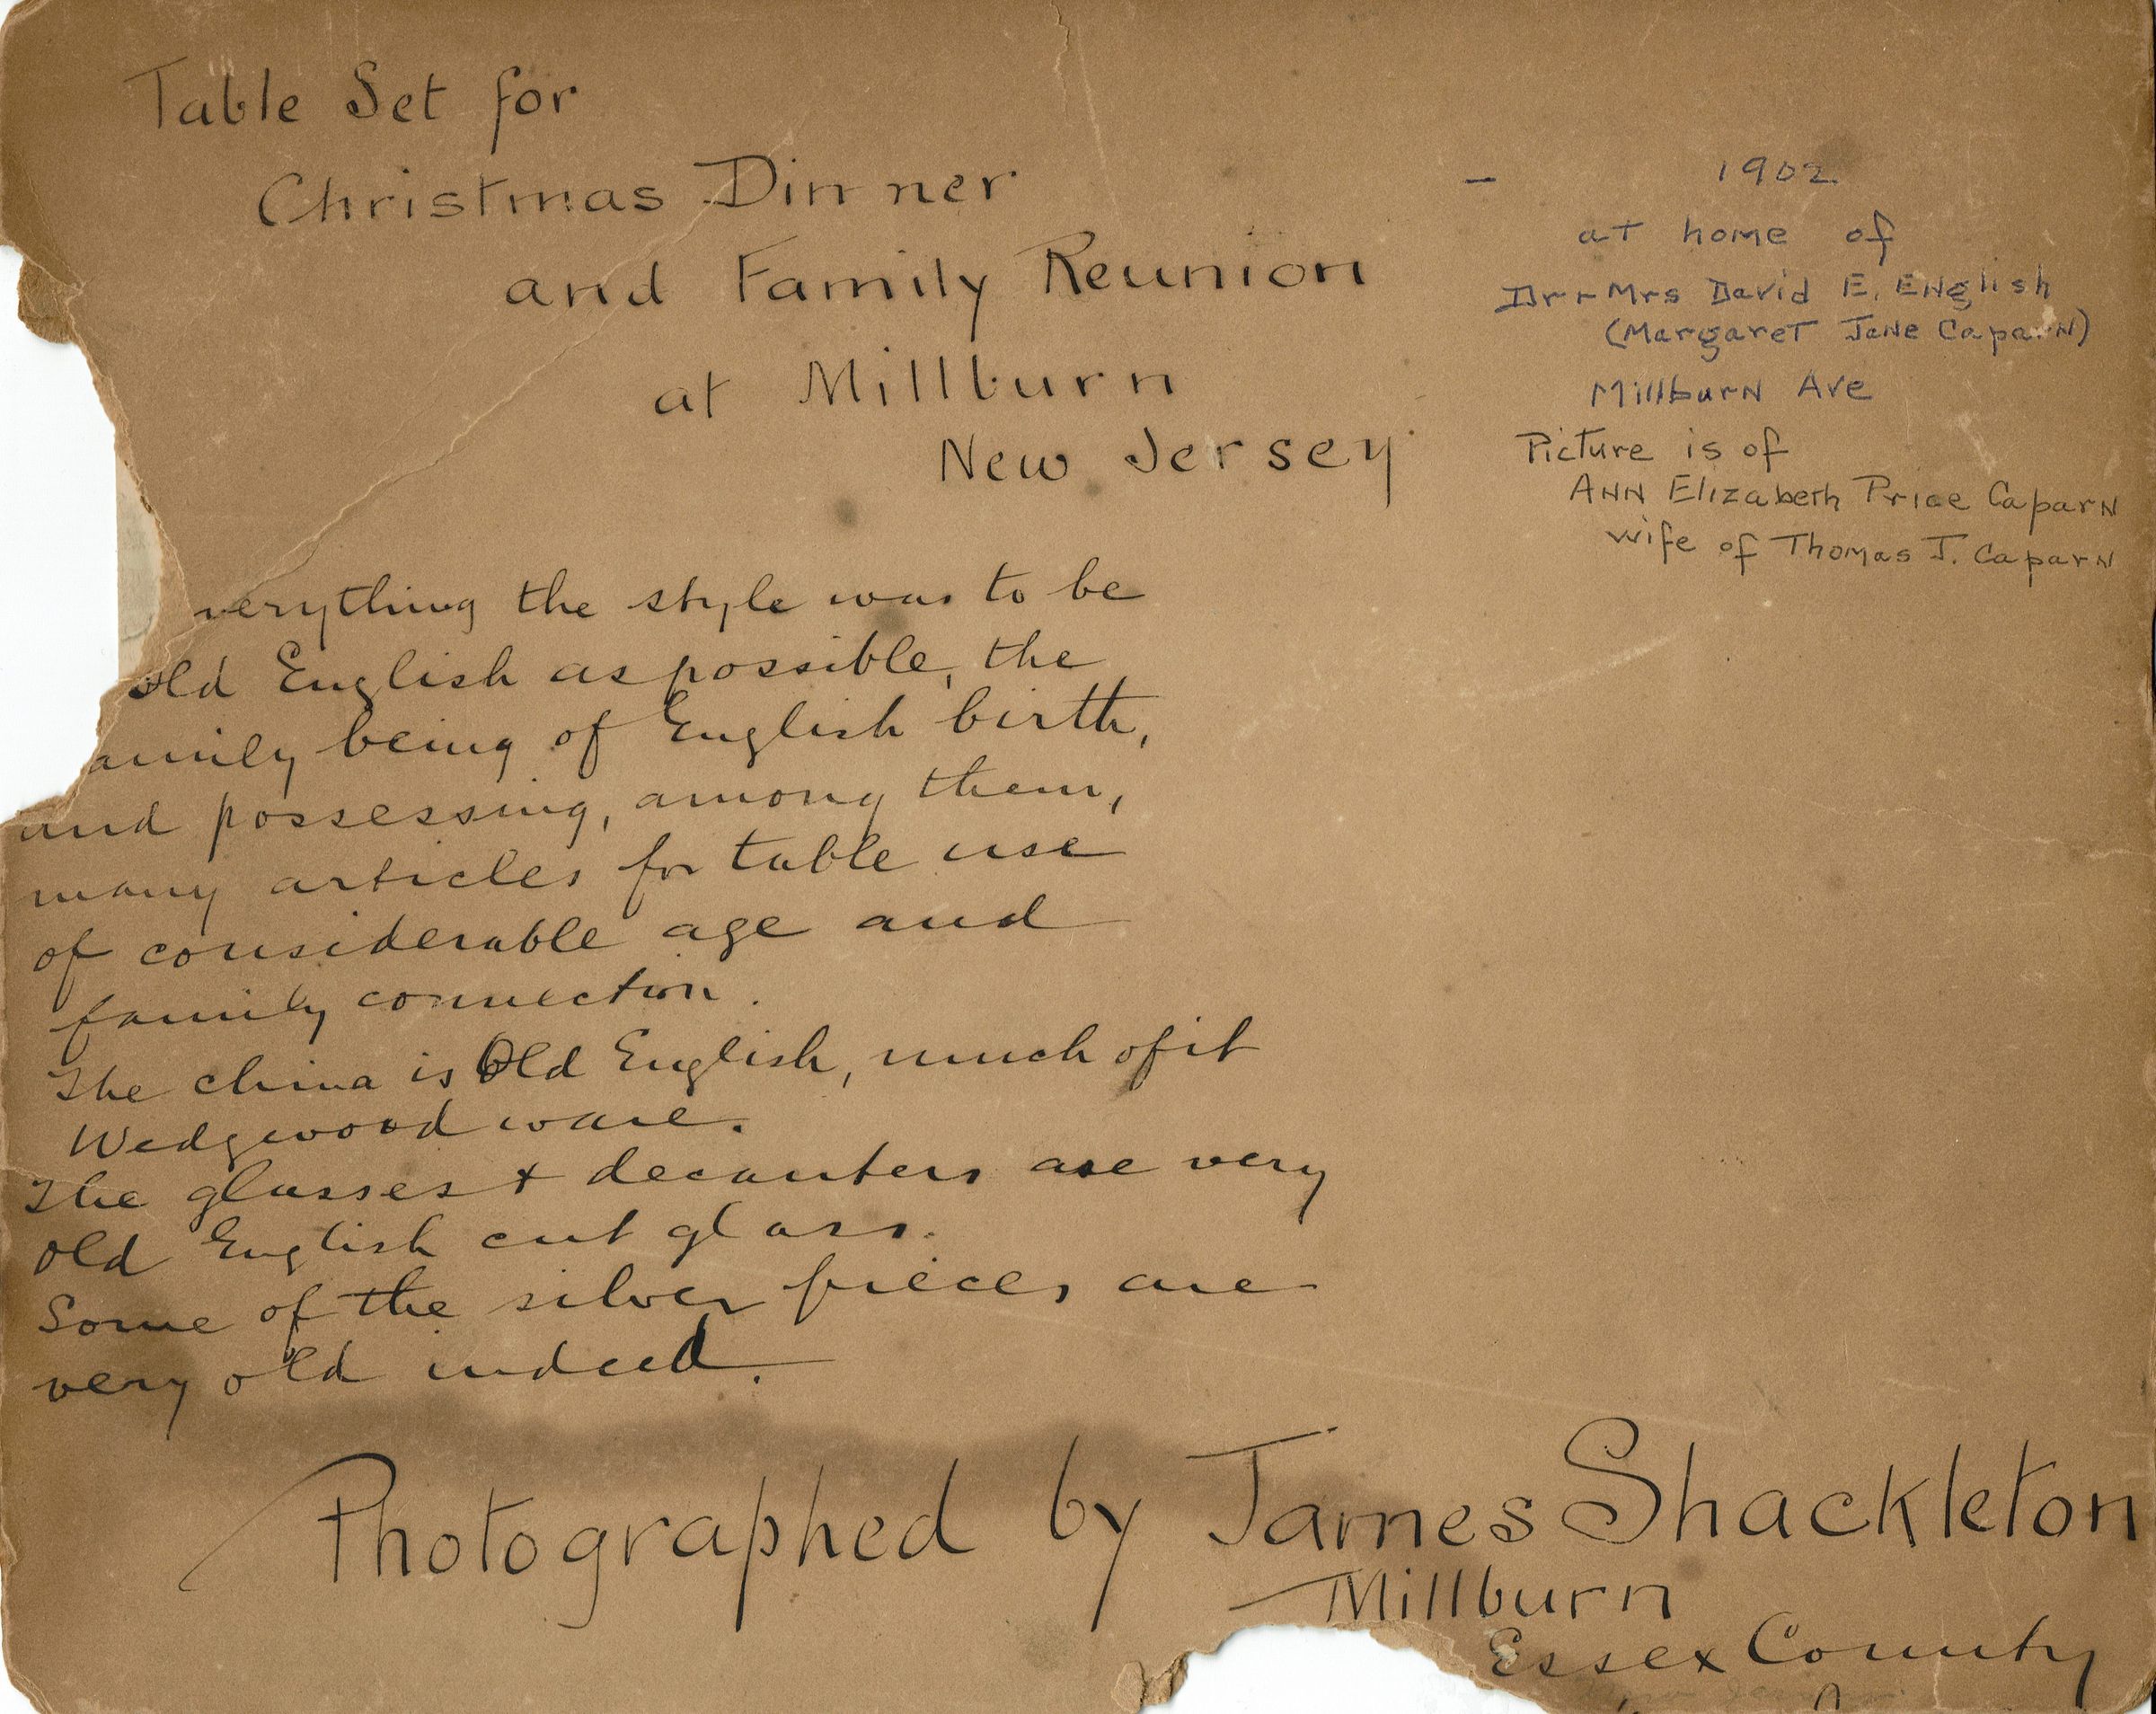 Table Set for
Christmas Dinner
and Family Reunion
at Millburn
New Jersey
verything the style was to be
old English as possible, the
amily being of English birth,
and possessing, among them,
many articles for table use
of considerable age and
family connection.
The china is Old English, much of it
Wedgwood ware.
The glasses + decanters are very
old English cut glass.
Some of the silver pieces are
very old indeed.
Photographed by James Shackleton
Millburn
Essex County
– 1902
at home of
Dr + Mrs David E. English
(Margaret Jane Caparn)
Millburn Ave
Picture is of
Ann Elizabeth Price Caparn
wife of Thomas J. Caparn